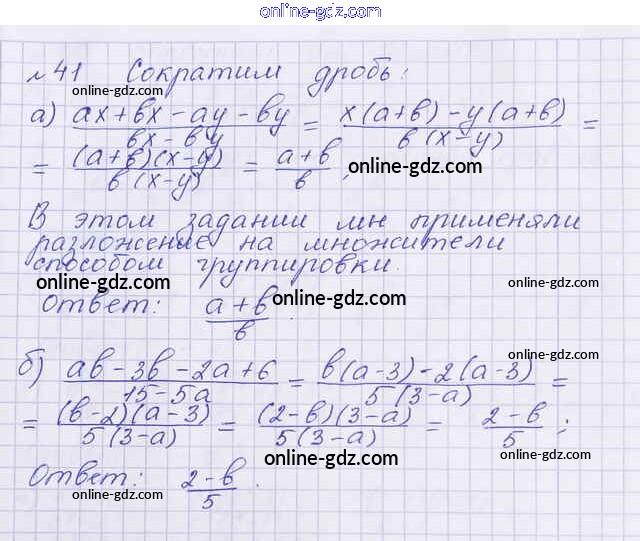 online-gdz.com
№41 Сократим дробь:
online-gdz.com
а) (ax + bx - ay - by)/(bx - by) = (x(a+b) - y(a+b))/(b(x-y)) =
= ((a+b)(x-y))/(b(x-y)) = (a+b)/b;
online-gdz.com
online-gdz.com
В этом задании мы применяли
разложение на множители
способом группировки.
online-gdz.com online-gdz.com online-gdz.com
Ответ: (a+b)/b.
online-gdz.com
б) (ab - 3b - 2a + 6)/(15 - 5a) = (b(a-3) - 2(a-3))/(5(3-a)) =
= ((b-2)(a-3))/(5(3-a)) = ((2-b)(3-a))/(5(3-a)) = (2-b)/5;
online-gdz.com online-gdz.com
Ответ: (2-b)/5.
online-gdz.com online-gdz.com